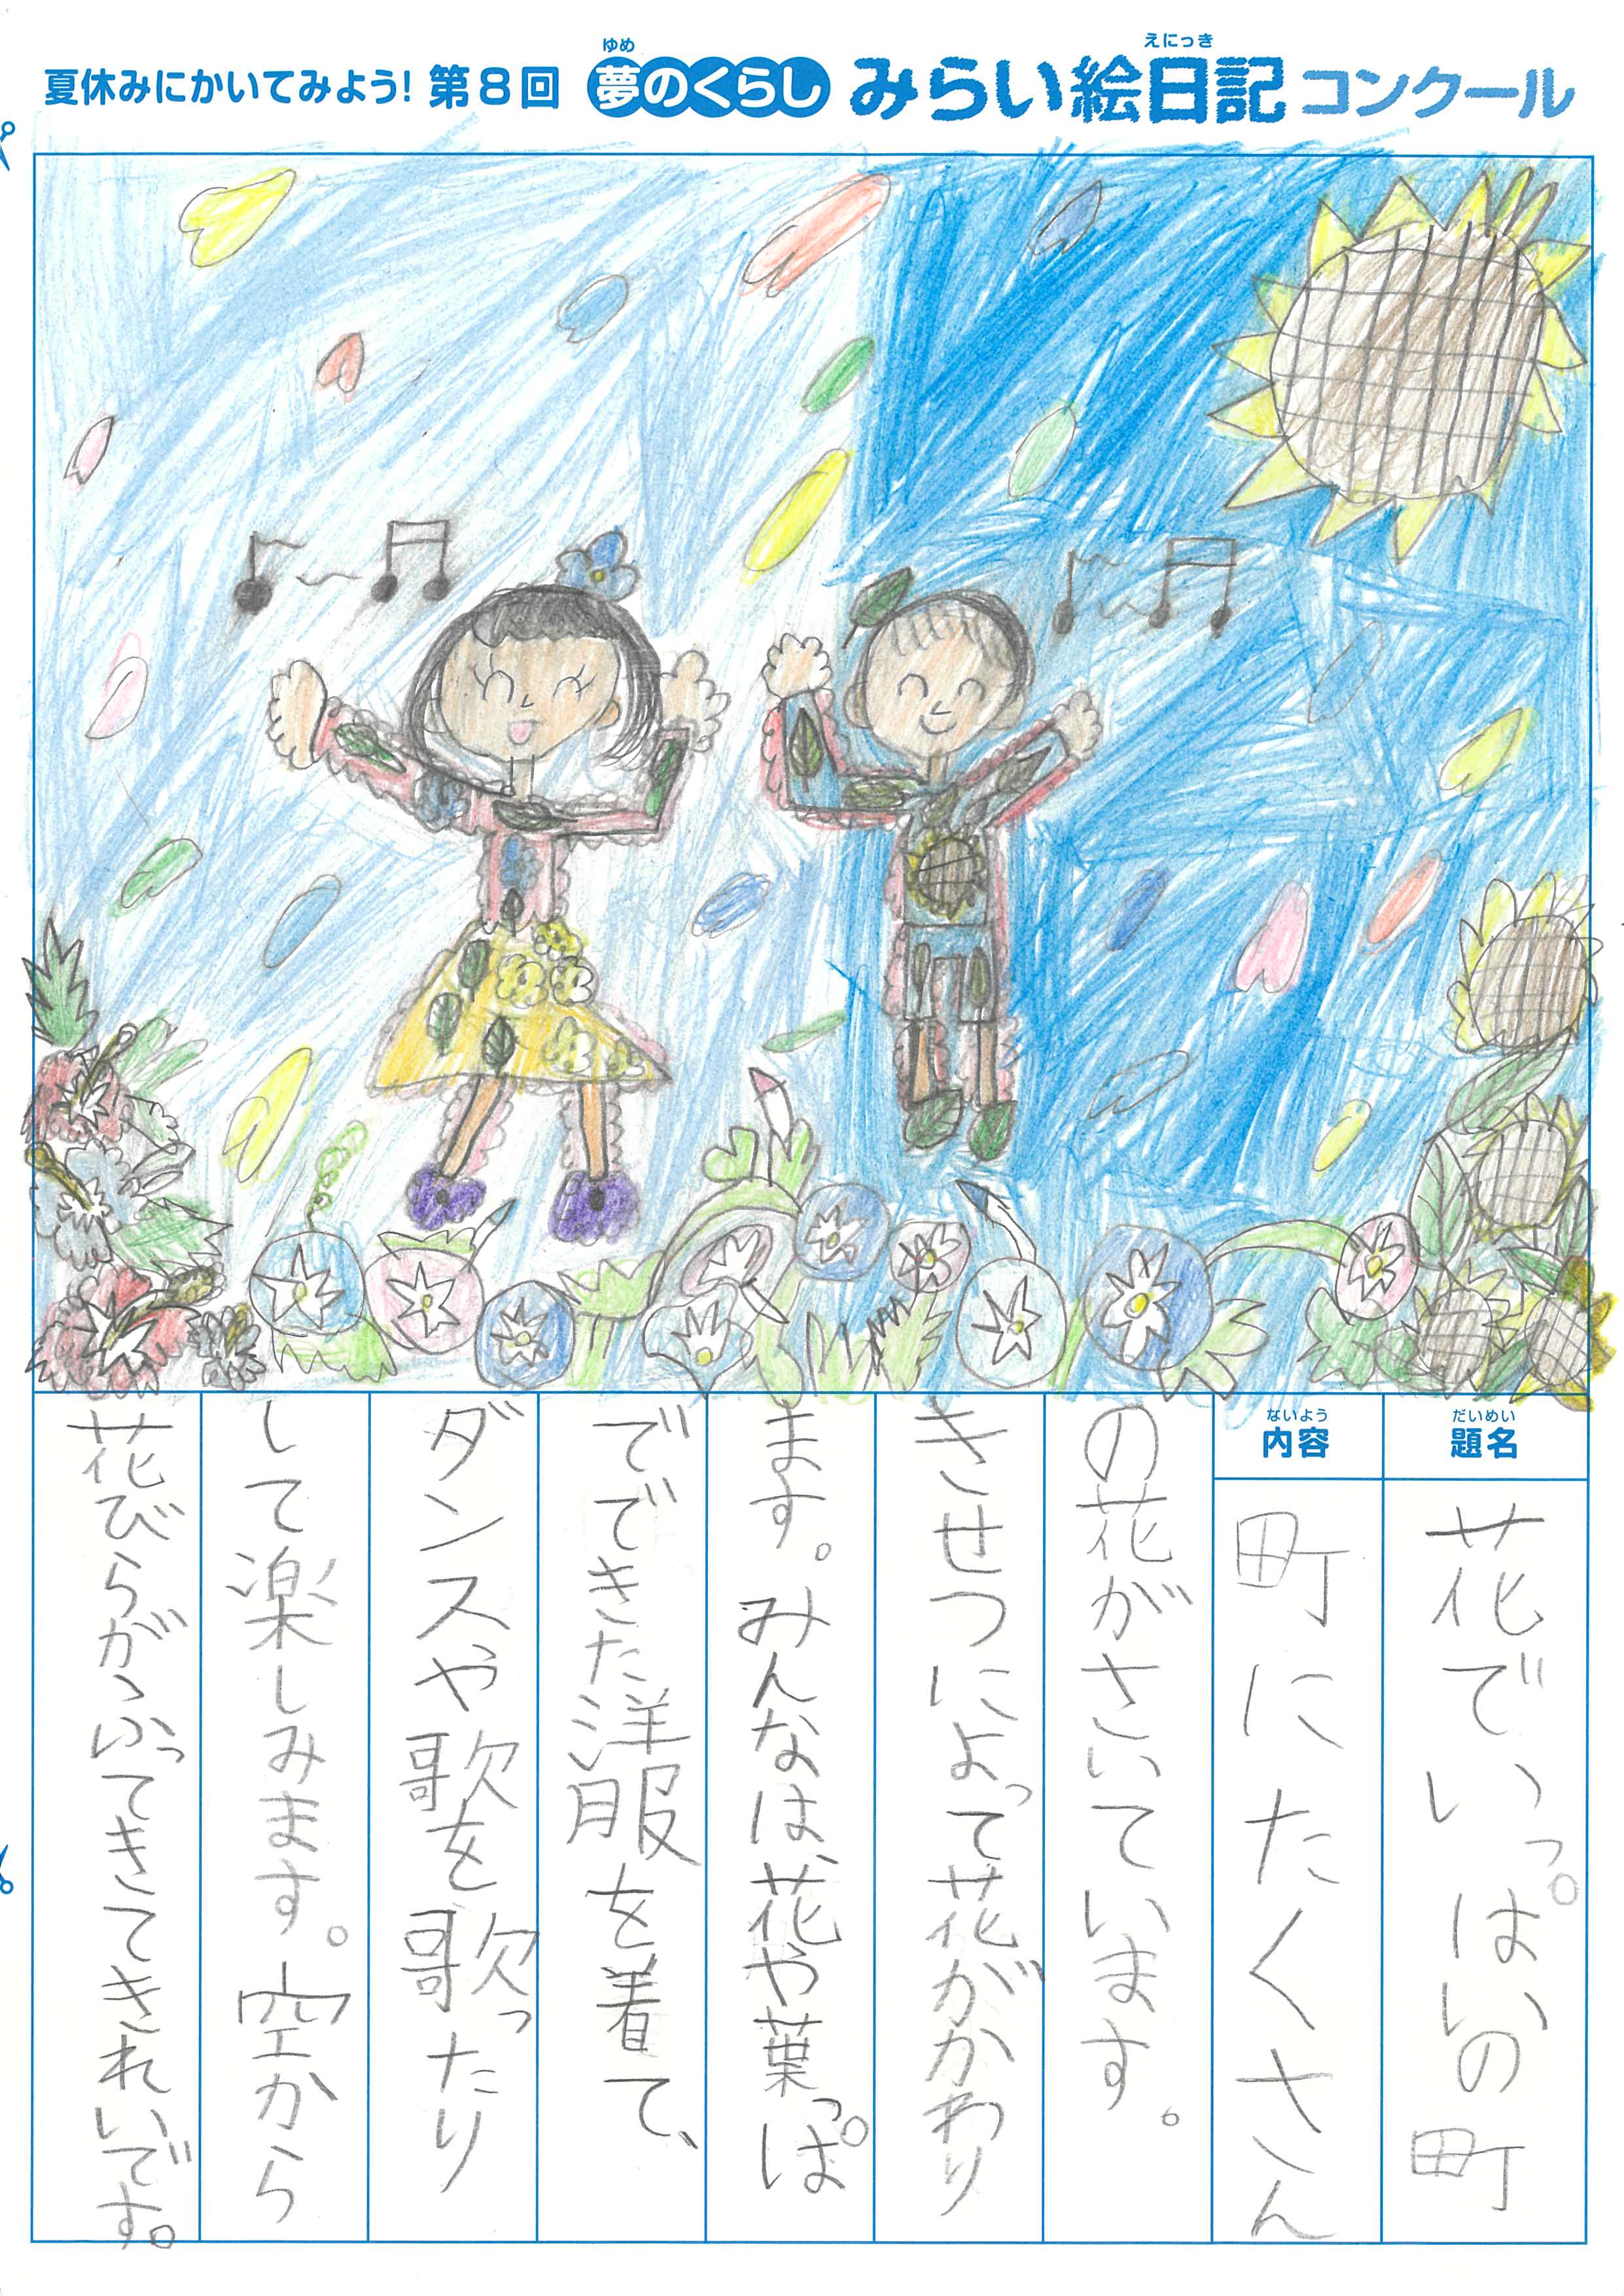 夏休みにかいてみよう!第8回 夢のくらし みらい絵日記コンクール
ゆめ
えにっき
だいめい
題名
花でいっぱいの町
ないよう
内容
町にたくさん
の花がさいています。
きせつによって花がかわり
ます。みんなは、花や葉っぱ
でできた洋服を着て、
ダンスや歌を歌ったり
して楽しみます。空から
花びらが、ふってきてきれいです。